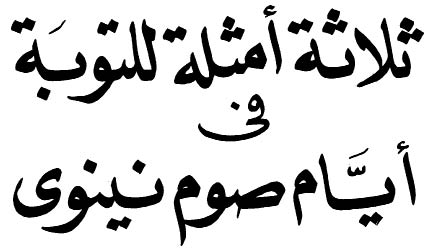 ثلاثة أمثلة للتوبَة
فى
أيَّام صوم نينوى